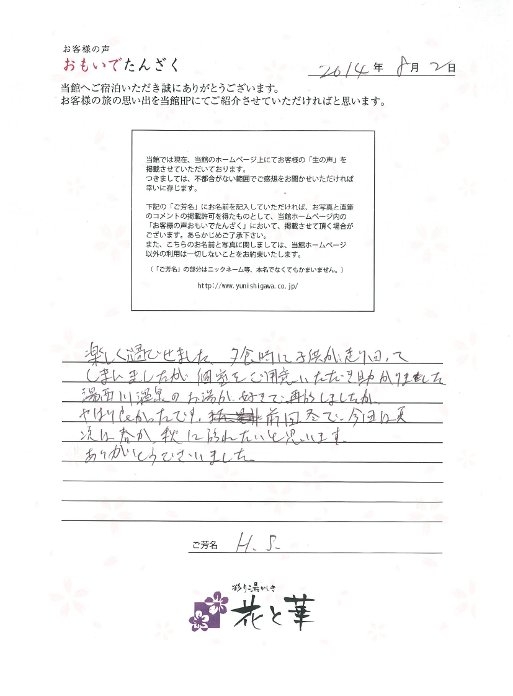 お客様の声
おもいでたんざく
2014年 8月 2日
当館へご宿泊いただき誠にありがとうございます。
お客様の旅の思い出を当館HPにてご紹介させていただければと思います。
当館では現在、当館のホームページ上にてお客様の「生の声」を
掲載させていただいております。
つきましては、不都合がない範囲でご感想をお聞かせいただければ
幸いに存じます。
下記の「ご芳名」にお名前を記入していただければ、お写真と直筆
のコメントの掲載許可を得たものとして、当館ホームページ内の
「お客様の声おもいでたんざく」において、掲載させて頂く場合が
ございます。あらかじめご了承下さい。
また、こちらのお名前と写真に関しましては、当館ホームページ
以外の利用は一切しないことをお約束いたします。
(「ご芳名」の部分はニックネーム等、本名でなくてもかまいません。)
http://www.yunishigawa.co.jp/
楽しく過ごせました。夕食時に子供が走り回って
しまいましたが個室をご用意いただき助かりました
湯西川温泉のお湯が好きで再訪しましたが、
やはり良かったです。前回冬で、今回は夏
次は春か、秋に訪れたいと思います。
ありがとうございました。
ご芳名 H. S.
彩り湯かしき
花と華